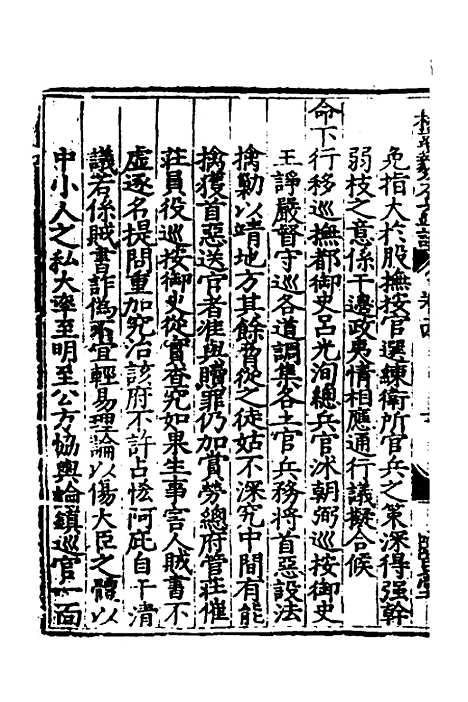 免指大於股撫按官選練衛所官兵之策深得強幹
弱枝之意係干邊政夷情相應通行議擬合候
命下行移巡撫都御史呂光洵總兵官沐朝弼巡按御史
王諍嚴督守巡各道調集各土官兵務將首惡設法
擒勦以靖地方其餘脅從之徒姑不深究中間有能
擒獲首惡送官者准與贖罪仍加賞勞總府管莊催
莊員役巡按御史從實查究如果生事害人賊書不
虛逐名提問重加究治該府不許占恡阿庇自干清
議若係賊書詐僞不宜輕易理論以傷大臣之體以
中小人之私大率至明至公方協輿論鎮巡官一面